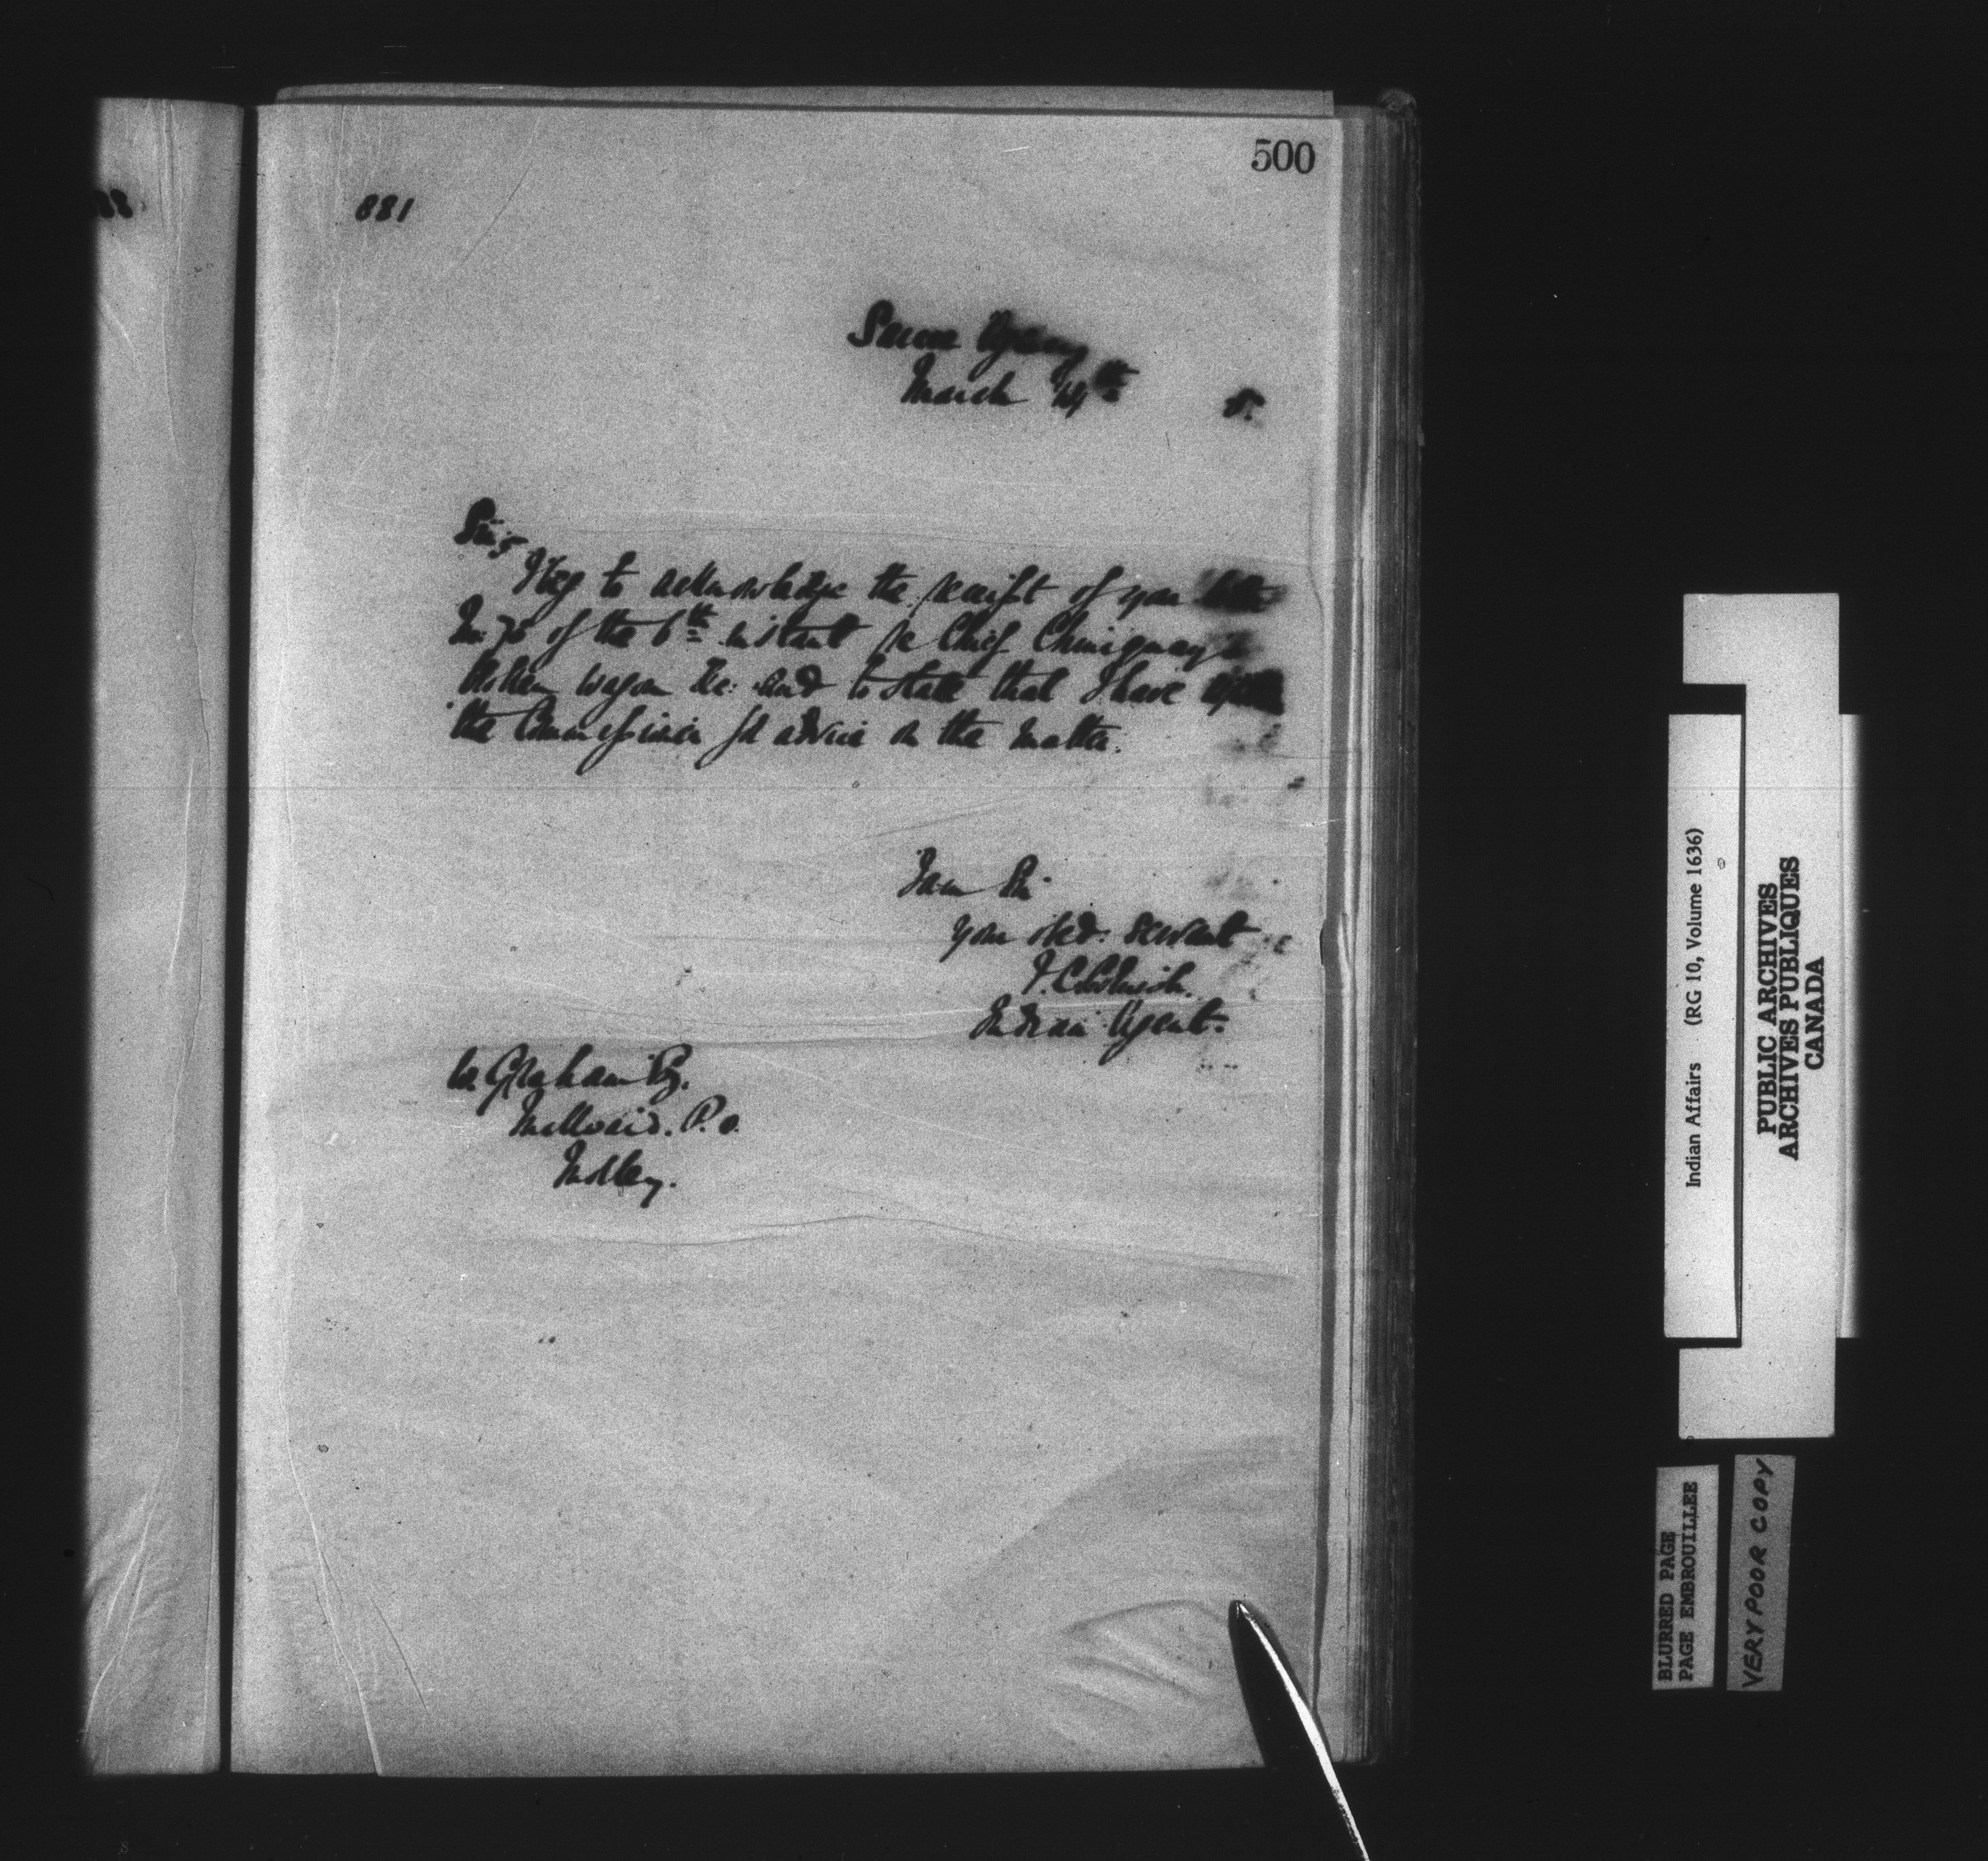 500
881
Sarcee Agency
March 14th 8.
Sir,
I beg to acknowledge the receipt of your letter
No. 70 of the 6th instant re Chief Chiniquay's
broken wagon &c: and to state that I have
the Commissioner for advice on the matter.
I am Sir
your obed. servant
Indian Agent.
W. Graham Esq.
P.O.
Morley.
Indian Affairs (RG 10, Volume 1636)
PUBLIC ARCHIVES
ARCHIVES PUBLIQUES
CANADA
BLURRED PAGE
PAGE EMBROUILLEE
VERY POOR COPY